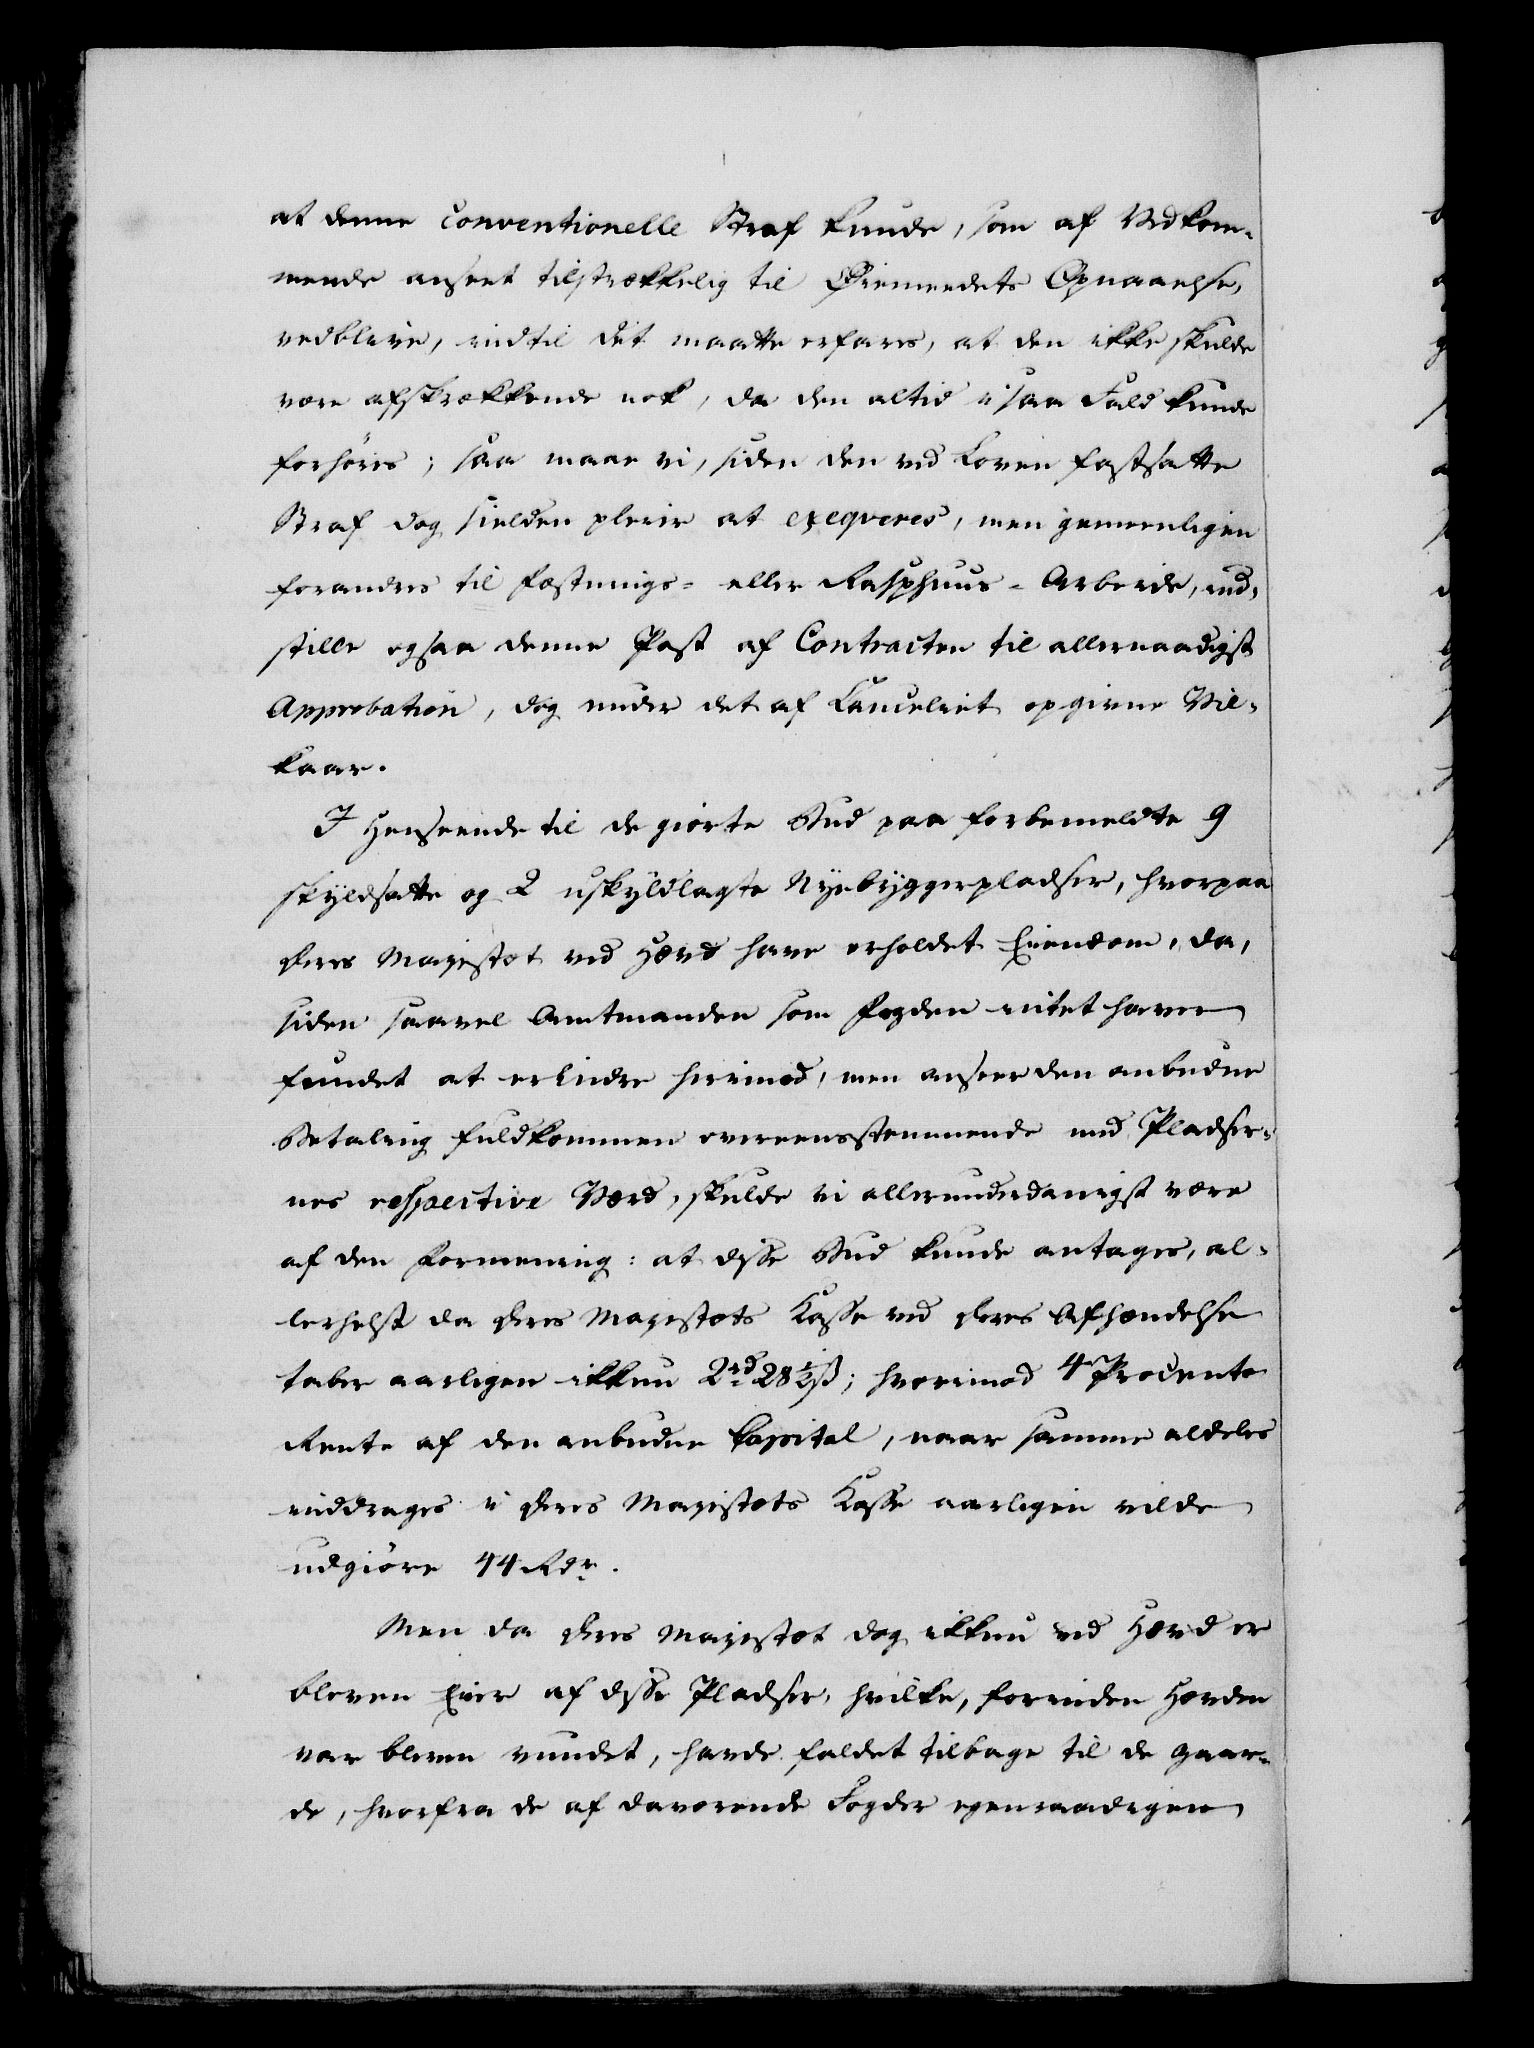 at denne Conventionelle Straf kunde, som af Vedkom-
mende anseet tilstrækkelig til Øiemeedets Opnaaelse,
vedblive, indtil det maatte erfares, at den ikke skulde
være afskrækkende nok, da den altid i saa Fald kunde
forhöies; saa maae vi, siden den ved Loven fastsatte
Straf dog sielden pleier at exeqveres, men gemeenligen
forandres til Fæstnings- eller Rasphuus-Arbeide, ind-
stille ogsaa denne Post af Contracten til allernaadigst
Approbation, dog under det af Cancelliet opgivne Vil-
kaar.
I Henseende til de giorte Bud paa forbemeldte 9
skyldsatte og 2 uskyldlagte Nyebyggerpladser, hvorpaa
Deres Majestæt ved Hævd have erholdet Eiendom, da,
siden saavel Amtmanden som Fogden intet haver
fundet at erindre herimod, men anseer den anbudne
Betaling fuldkommen overeensstemmende med Pladser-
nes respective Værd, skulde vi allerunderdanigst være
af den Formening: at disse Bud kunde antages, al-
lerhelst da Deres Majestæts Kasse ved deres Afhændelse
taber aarligen ikkun 2 rd 28 1/2 ß; hvorimod 4 Procento
Rente af den anbudne Capital, naar samme aldeles
inddrages i Deres Majestæts Kasse aarligen vilde
udgiöre 44 Rdr.
Men da Deres Majestæt dog ikkun ved Hævd er
bleven Eier af disse Pladser, hvilke, forinden Hævden
var bleven vundet, havde faldet tilbage til de Gaar-
de, hvorfra de af daværende Fogder egenraadigen